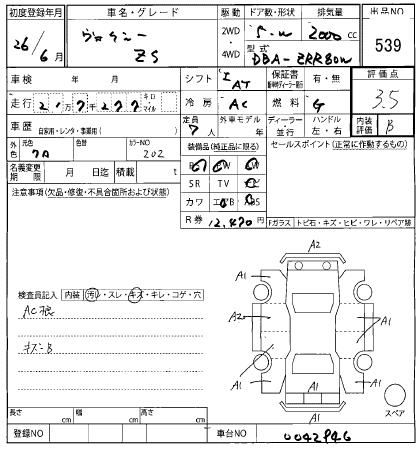 初度登録年月 車名・グレード 駆動 ドア数・形状 排気量 出品NO
26/6月 ヴォクシー ZS 2WD・4WD 5・W 2000cc 539
型式 DBA-ZRR80W
車検 年 月 シフト IAT 保証書 有・無 評価点
走行 キロ・マイル 冷房 AC 燃料 G 3.5
車歴 自家用・レンタ・事業用( ) 定員 7人 外車モデル 年 ディーラー・並行 ハンドル 左・右 内装評価 B
外色 元色 色替 カラーNO 装備品(純正品に限る) セールスポイント(正常に作動するもの)
202
名義変更期限 月 日迄 積載 t SR TV
注意事項(欠品・修復・不具合箇所および状態) カワ
R券 12,470円
Fガラス トビ石・キズ・ヒビ・ワレ・リペア跡
A2
A1 A1
検査員記入 内装 汚レ・スレ・キズ・キレ・コゲ・穴
A2 A1
キズ-B
A1 A1 A1
スペア
A1
長さ cm 幅 cm 高さ cm
登録NO 車台NO 0042946